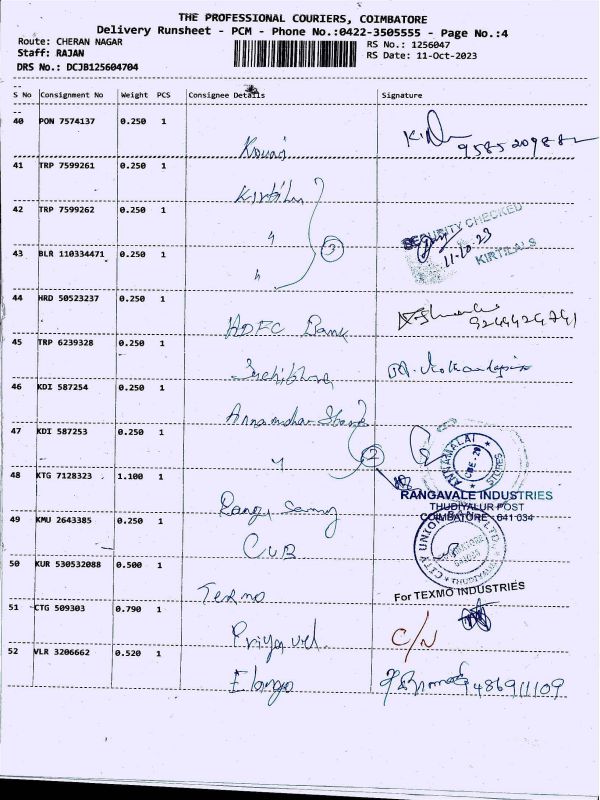 THE PROFESSIONAL COURIERS, COIMBATORE
Delivery Runsheet - PCM - Phone No.:0422-3505555 - Page No.:4
Route: CHERAN NAGAR
RS No.: 1256047
Staff: RAJAN
RS Date: 11-Oct-2023
DRS No.: DCJB125604704
S No Consignment No Weight PCS Consignee Details Signature
40 PON 7574137 0.250 1
9585209882
41 TRP 7599261 0.250 1
42 TRP 7599262 0.250 1
SECURITY CHECKED
11-10-23
KIRTILALS
3
43 BLR 110334471 0.250 1
44 HRD 50523237 0.250 1
HDFC Bank
45 TRP 6239328 0.250 1
46 KDI 587254 0.250 1
47 KDI 587253 0.250 1
2
ANNAMALAI
STORES
48 KTG 7128323 1.100 1
RANGAVALE INDUSTRIES
THUDIYALUR POST
COIMBATORE - 641 034
49 KMU 2643385 0.250 1
CUB
CITY UNION BANK LTD.
50 KUR 530532088 0.500 1
Texmo
For TEXMO INDUSTRIES
51 CTG 509303 0.790 1
Priya vel.
C/N
52 VLR 3206662 0.520 1
Elango
9486911109